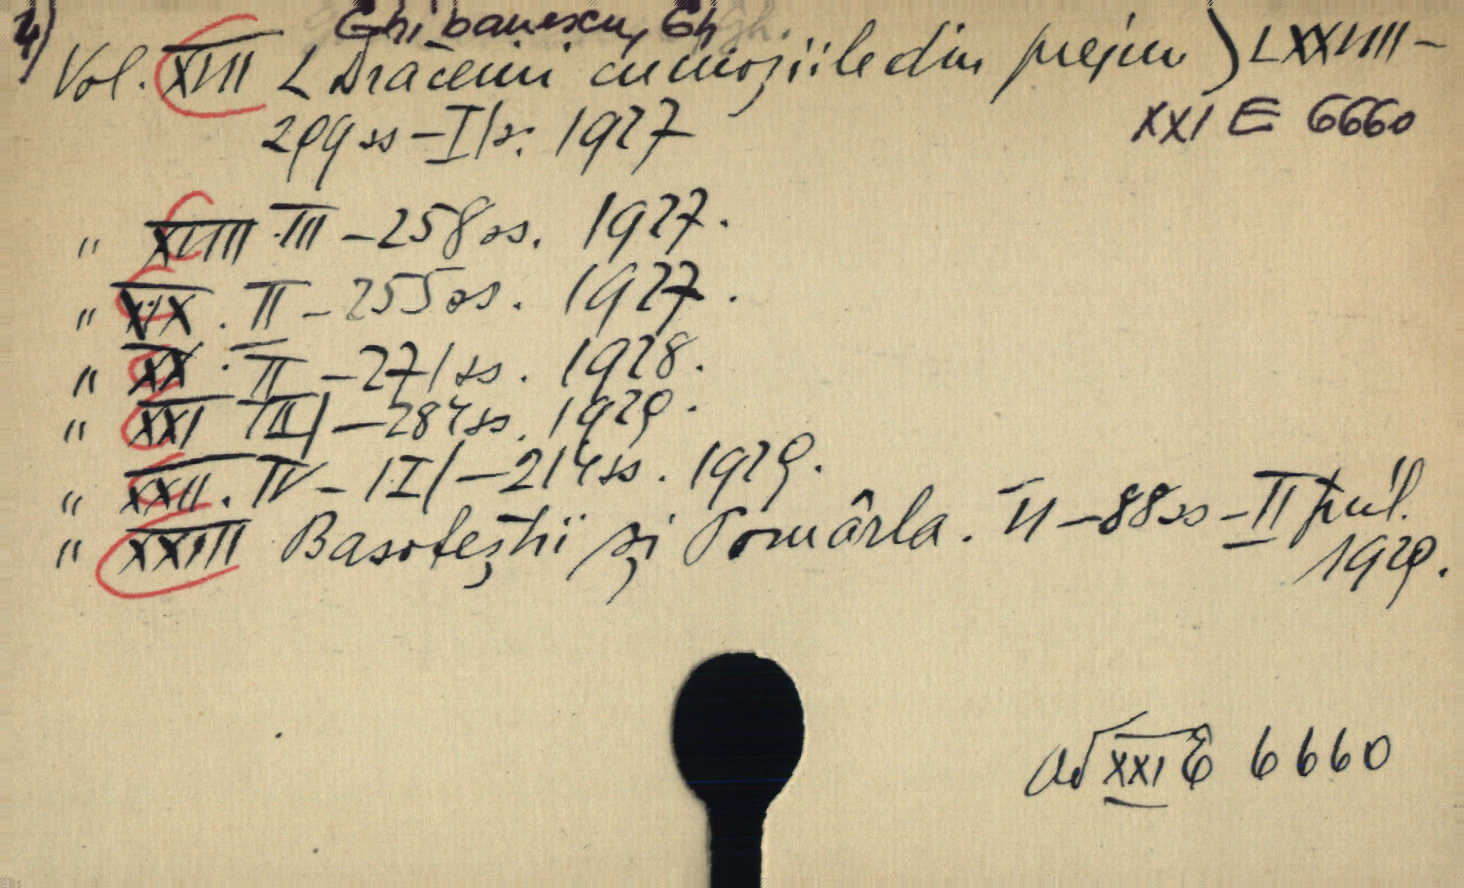 4) Ghibanescu, Gh
Vol. XVII (Drăcenii cu moșiile din prejur) LXXVIII –
299 ss – I/s. 1927
XXI E 6660
" XVIII III – 258 ss. 1927.
" XIX . II – 255 ss. 1927.
" XX . II – 271 ss. 1928.
" XXI III/ – 284 ss. 1929.
" XXII . IV – II/ – 214 ss. 1929.
" XXIII Basoteștii și Pomârla. II – 88 ss – II
1929.
XXI E 6660